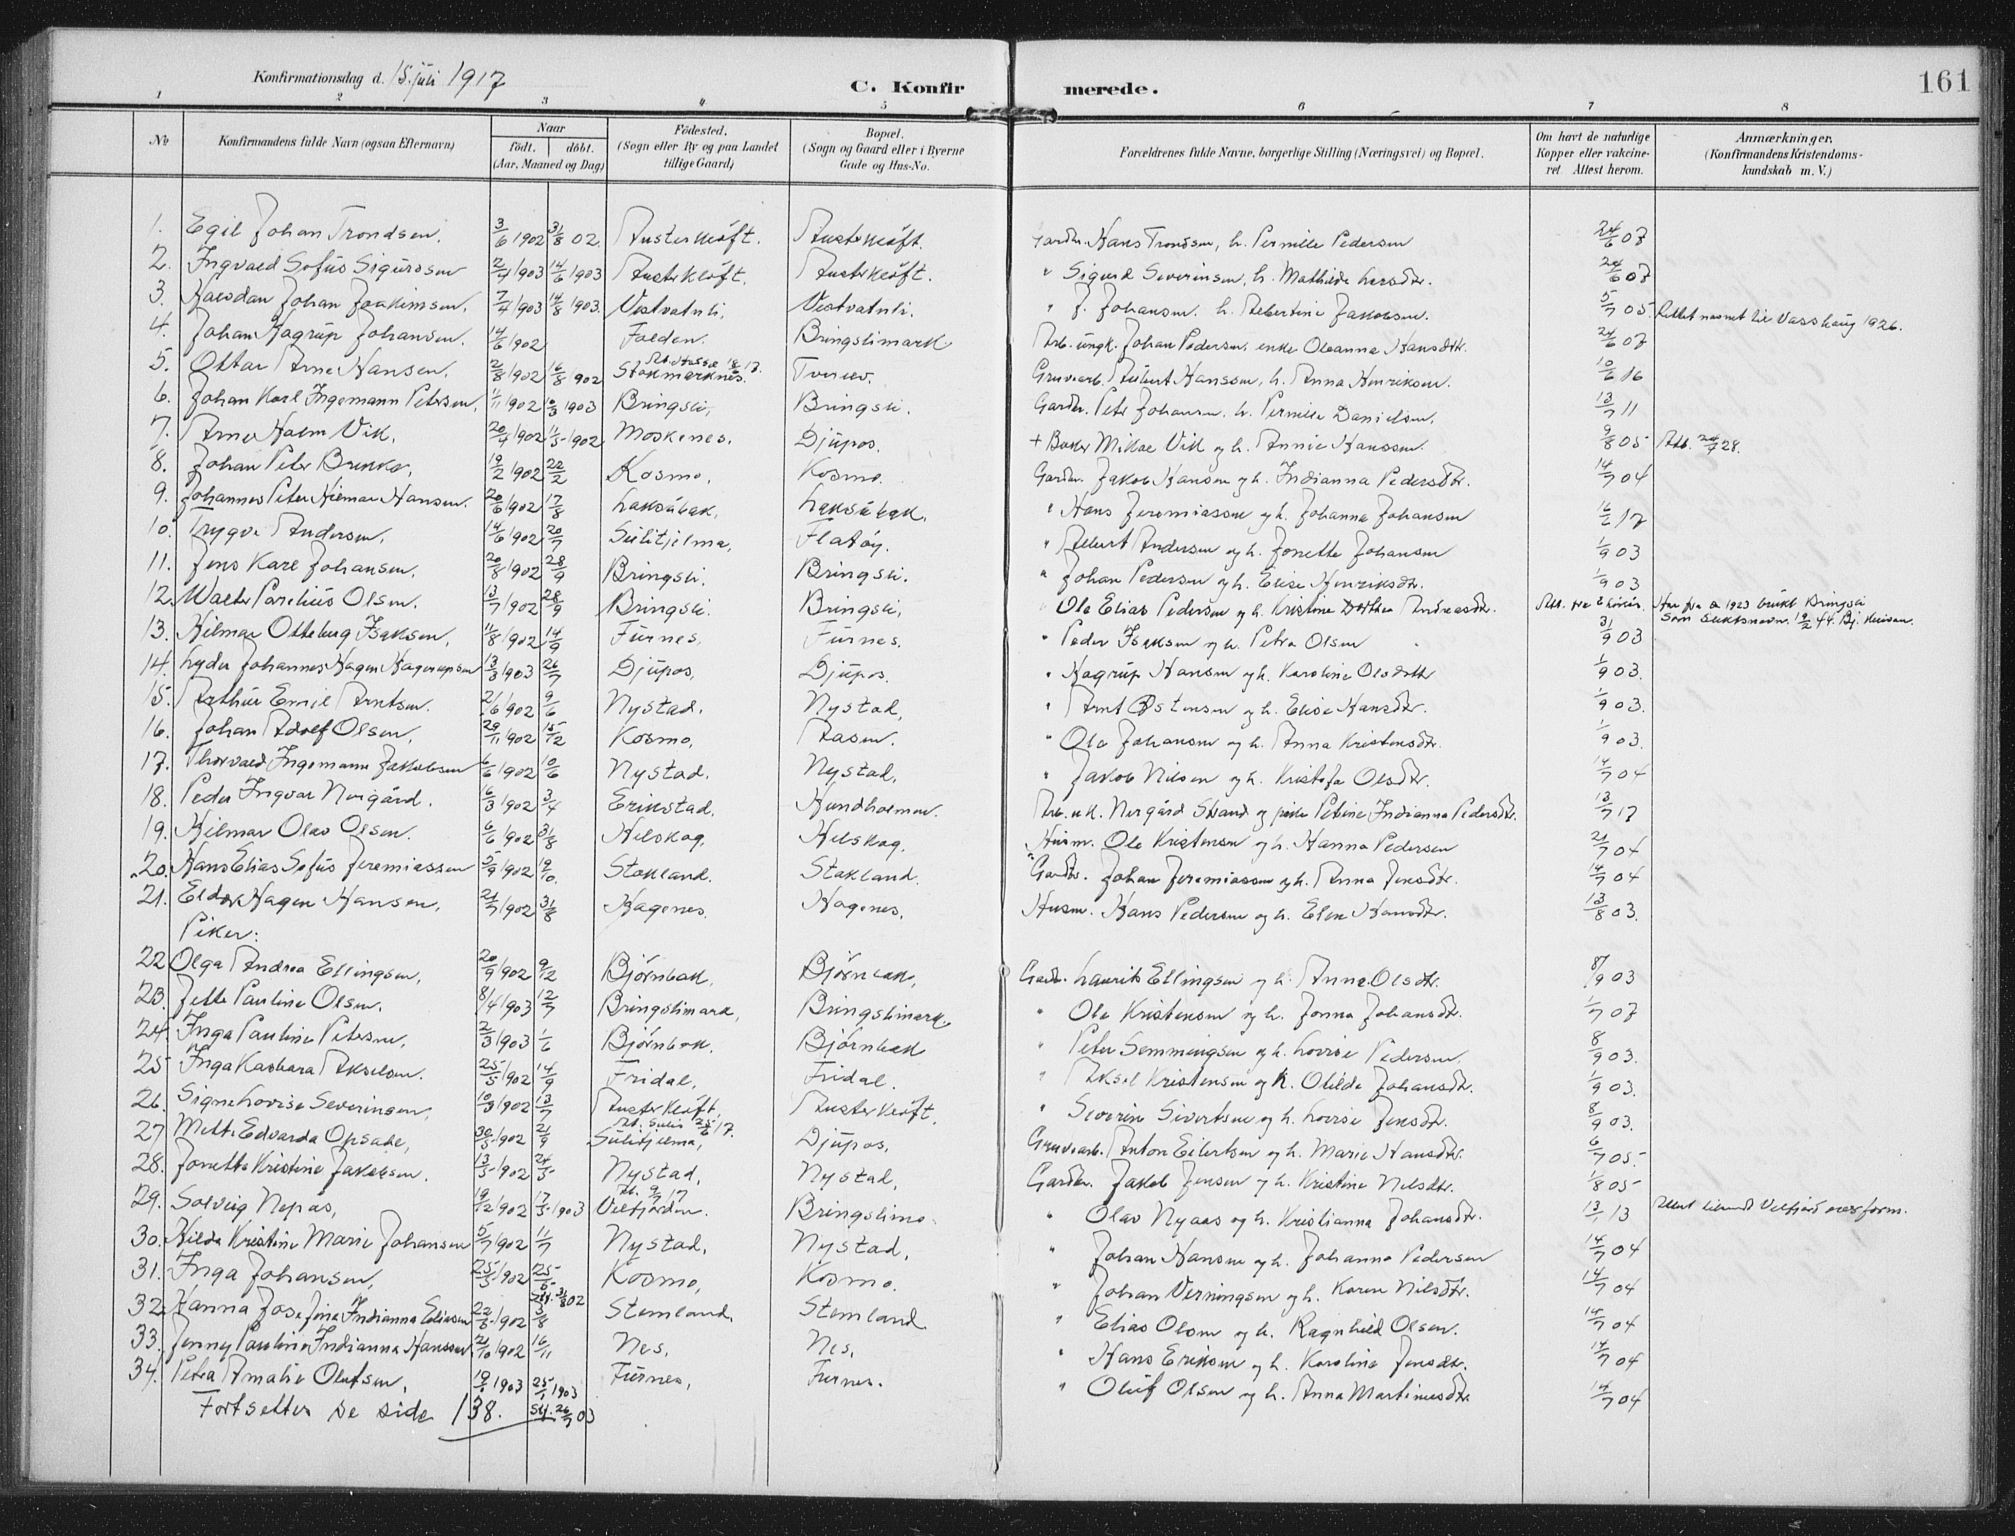 Konfirmationsdag d. 15. juli 1917
C. Konfirmerede.
161
1 2 3 4 5 6 7 8
No
Konfirmandens fulde Navn (ogsaa Efternavn)
Naar
födt. döbt.
(Aar, Maaned og Dag)
Födested.
(Sogn eller By og paa Landet tillige Gaard)
Bopæl.
(Sogn og Gaard eller i Byerne Gade og Hus-No.
Forældrenes fulde Navne, borgerlige Stilling (Næringsvei) og Bopæl.
Om havt de naturlige Kopper eller vakcineret. Attest herom.
Anmærkninger.
(Konfirmandens Kristendomskundskab m. V.)
1. Egil Johan Trondsen. 3/6 1902 31/8 02. Austerkløft. Austerkløft. Gardbr. Hans Trondsen, h. Pernille Pedersen 24/6 07
2. Ingvald Sofus Sigurdsen 2/4 1903 14/6 1903 Austerkløft. Austerkløft. " Sigurd Severinsen, h. Mathilde Larsdtr. 24/6 07
3. Halvdan Johan Joakimsen. 7/4 1903 14/8 1903. Vestvatnli. Vestvatnli. " J. Johansen. h. Albertine Jakobsen. 5/7 05. Rettet navnet til Vasshaug 1926.
4. Johan Hagrup Johansen. 14/6 1902 Falden. Bringslimark Arb. ungk. Johan Pedersen, enke Oleanna Hansdtr. 24/6 07
5. Ottar Arne Hansen. 2/8 1902 16/8 902 Stokmarknes. Tverelv. Gruvearb. Albert Hanssen, h. Anna Henriksen. 10/6 16
6. Johan Karl Ingemann Petersen, 1/11 1902 10/3 1903 Bringsli, Bringsli. Gardbr. Peter Johansen. h. Pernille Danielsen. 13/7 11
7. Arne Halm Vik. 20/4 1902 11/5 1902 Moskenes. Djupos. + Baker Mikal Vik og h. Annie Hanssen. 9/8 05 Atb. 24/4 28.
8. Johan Peter Brekke. 19/2 1902 22/2 Kosmo. Kosmo. Gardbr. Jakob Hansen og h. Indianna Pedersdtr. 14/7 04
9. Johannes Peter Hilmar Hansen. 20/6 1902 17/8 Laksåbak, Laksåbak. " Hans Jeremiassen og h. Johanna Johansen 16/2 17
10. Trygve Andersen. 14/6 1902 20/7 Sulitjelma, Flatøy. " Albert Andersen og h. Jonette Johansen 1/9 03
11. Jens Karl Johansen. 20/8 1902 28/9 Bringsli. Bringsli. " Johan Pedersen og h. Elise Henriksdtr. 1/9 03
12. Walter Parelius Olsen. 13/7 1902 28/9 Bringsli. Bringsli. " Ole Elias Pedersen og h. Kristine Dorthea Andreasdtr. Har fra 1923 brukt Bringsli
som slektsnavn. 19/2 44.
13. Hilmar Otteberg Isaksen. 11/8 1902 14/9 Furnes. Furnes. " Peder Isaksen og h. Petra Olsen 31/9 03
14. Lyder Johannes Hagen Hagerupsen 13/3 1903 26/7 Djupos. Djupos. " Hagrup Hansen og h. Karoline Olsdatter 1/9 03.
15. Arthur Emil Arntsen. 21/6 1902 9/6 Nystad. Nystad. " Arnt Østensen og h. Elise Hansdtr. 1/9 03.
16. Johan Adolf Olsen. 29/11 1902 15/12 Kosmo. Aasen. " Ole Johansen og h. Anna Kristensdtr. 1/9 03.
17. Thorvald Ingemann Jakobsen 6/6 1902 10/6 Nystad. Nystad. " Jakob Nilsen og h. Kristofa Olsdtr. 14/7 04
18. Peder Ingvar Norgård. 16/3 1902 3/4 Erikstad. Hundholmen. Arb. uk. Norgård Strand og pike Petrine Indianna Pedersdtr. 13/7 17
19. Hilmar Olav Olsen. 6/6 1902 31/8 Nilskog. Nilskog. Husm. Ole Kristensen og h. Hanna Pedersen 21/7 04
20. Hans Elias Sofus Jeremiassen 5/9 1902 19/10. Stokland. Stokland. Gardbr. Johan Jeremiassen og h. Anna Jensdtr. 14/7 04
21. Eldor Hagen Hansen. 21/7 1902 31/8 Hagenes. Hagenes. Husm. Hans Pedersen og h. Elen Hansdtr. 13/8 03.
Piker:
22 Olga Andrea Ellingsen, 20/9 1902 9/12 Bjørnbak, Bjørnbak, Gardb. Laurits Ellingsen og h. Anne Olsdtr. 8/9 03
23. Jette Pauline Olsen. 8/4 1903 12/7 Bringslimark, Bringslimark. " Ole Kristensen og h. Jonna Johansdtr. 1/7 07
24. Inga Pauline Petersen. 2/3 1903 1/6 Bjørnbak. Bjørnbak " Peter Semmingsen og h. Lovise Pedersen. 8/9 03.
25 Inga Kasbara Akselsen. 25/5 1902 14/9 Fridal. Fridal. " Aksel Kristensen og h. Otilde Johansdtr. 1/9 03.
26. Signe Lovise Severinsen, 10/3 1902 13/7 Austerkløft. Austerkløft. " Severin Sivertsen og h. Lovise Jensdtr. 8/9 03.
27 Mette Edvarda Opsahl, 30/5 1902 21/9 Sulitjelma, Djupos. Gruvearb. Anton Eilertsen og h. Marie Hansdtr. 6/7 05.
28. Jonette Kristine Jakobsen. 13/5 1902 24/5 Nystad, Nystad, Gardbr. Jakob Jensen og h. Kristine Nilsdtr. 1/8 05
29. Solveig Nepås, 19/12 1902 17/5 1903 Velfjorden. Bringslimo. " Olav Nyaas og h. Kristianna Johansdtr. 13/1 13
30. Hilda Kristine Marie Johansen 5/7 1902 11/7 Nystad, Nystad, " Johan Hansen og h. Johanna Pedersen 14/7 04
31. Inga Johansen, 25/5 1902 25/5 Kosmo, Kosmo. " Johan Verningsen og h. Karen Nilsdtr. 14/7 04
32. Hanna Josefine Indianna Eliassen 22/8 1902 3/8 Stemland Stemland " Elias Olsen og h. Ragnhild Olsen. 14/7 04
33. Jenny Pauline Indianna Hanssen 2/10 1902 16/11 Nes. Nes. " Hans Eriksen og h. Karoline Jensdtr. 14/7 04
34. Petra Amalie Olufsen. 19/1 1903 25/1 1903 Furnes, Furnes. " Oluf Olsen og h. Anna Martinusdtr. 14/7 04
Fortsetter se side 138. 26/7 03